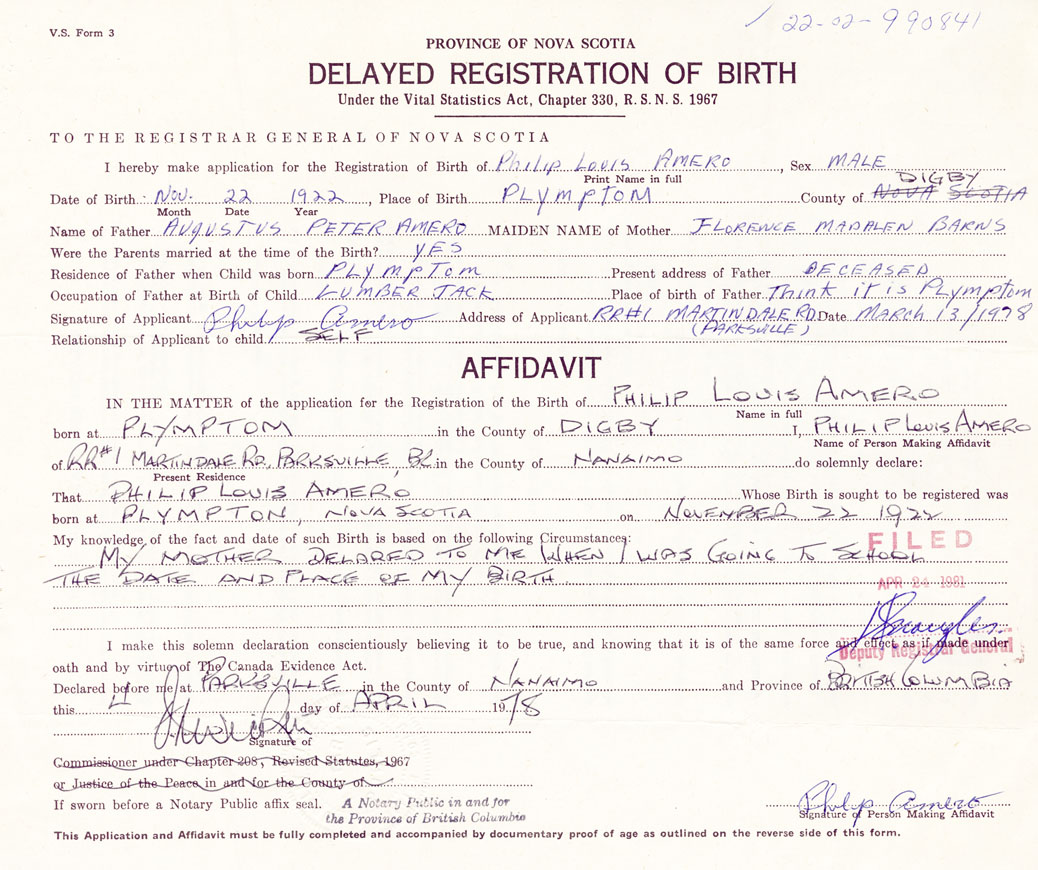 V.S. Form 3
22-02-990841
PROVINCE OF NOVA SCOTIA
DELAYED REGISTRATION OF BIRTH
Under the Vital Statistics Act, Chapter 330, R.S.N.S. 1967
TO THE REGISTRAR GENERAL OF NOVA SCOTIA
I hereby make application for the Registration of Birth of Philip Louis AMERO, Sex MALE
Print Name in full
DIGBY
Date of Birth NOV. 22 1922, Place of Birth PLYMPTOM County of NOVA SCOTIA
Month Date Year
Name of Father AUGUSTUS PETER AMERO MAIDEN NAME of Mother FLORENCE MADALEN BARNS
Were the Parents married at the time of the Birth? YES
Residence of Father when Child was born PLYMPTOM Present address of Father DECEASED
Occupation of Father at Birth of Child LUMBER JACK Place of birth of Father Think it is Plymptom
Signature of Applicant Philip Amero Address of Applicant RR#1 MARTINDALE RD Date MARCH 13/1978
(PARKSVILLE)
Relationship of Applicant to child SELF
AFFIDAVIT
IN THE MATTER of the application for the Registration of the Birth of PHILIP LOUIS AMERO
Name in full
born at PLYMPTOM in the County of DIGBY I, PHILIP Louis AMERO
Name of Person Making Affidavit
of RR#1 MARTINDALE RD, PARKSVILLE, BC in the County of NANAIMO do solemnly declare:
Present Residence
That PHILIP LOUIS AMERO Whose Birth is sought to be registered was
born at PLYMPTON, NOVA SCOTIA on NOVEMBER 22 1922
My knowledge of the fact and date of such Birth is based on the following Circumstances:
MY MOTHER DELARED TO ME WHEN I WAS GOING TO SCHOOL
FILED
THE DATE AND PLACE OF MY BIRTH
APR 24 1981
I make this solemn declaration conscientiously believing it to be true, and knowing that it is of the same force and effect as if made under
Deputy Registrar General
oath and by virtue of The Canada Evidence Act.
Declared before me at PARKSVILLE in the County of NANAIMO and Province of BRITISH COLUMBIA
this 4 day of APRIL 1978
Signature of
Commissioner under Chapter 208, Revised Statutes, 1967
or Justice of the Peace in and for the County of
If sworn before a Notary Public affix seal. A Notary Public in and for
the Province of British Columbia
Philip Amero
Signature of Person Making Affidavit
This Application and Affidavit must be fully completed and accompanied by documentary proof of age as outlined on the reverse side of this form.